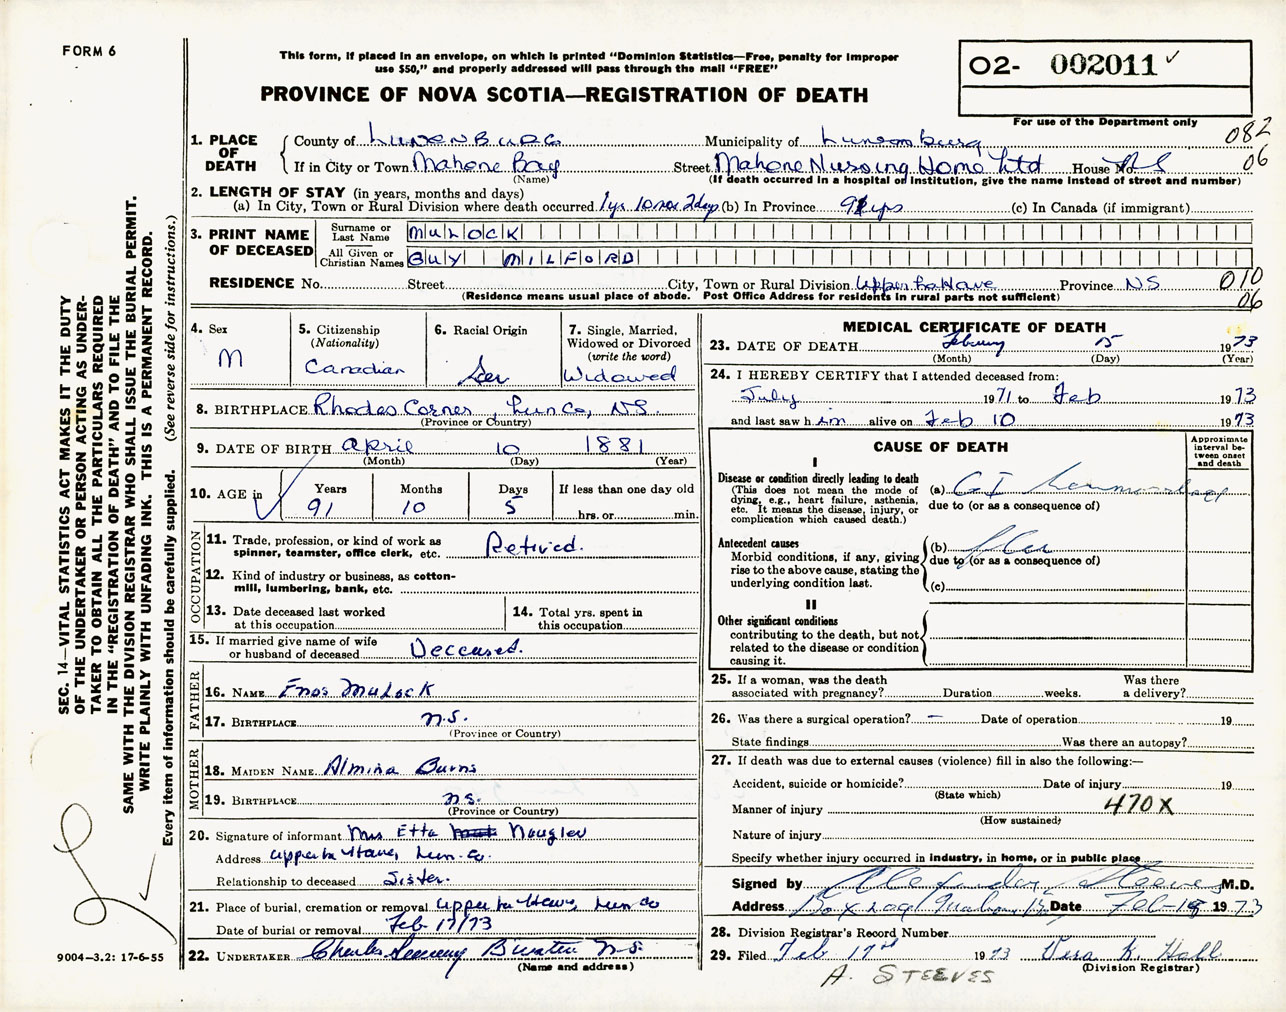 FORM 6
This form, if placed in an envelope, on which is printed "Dominion Statistics—Free, penalty for improper
use $50," and properly addressed will pass through the mail "FREE"
PROVINCE OF NOVA SCOTIA—REGISTRATION OF DEATH
O2- 002011
For use of the Department only
082
06
1. PLACE OF DEATH
County of Lunenburg Municipality of Lunenburg
If in City or Town Mahone Bay Street Mahone Nursing Home Ltd House No. NS
(Name) (If death occurred in a hospital or institution, give the name instead of street and number)
2. LENGTH OF STAY (in years, months and days)
(a) In City, Town or Rural Division where death occurred 1yr 10mos 2days (b) In Province 91yrs (c) In Canada (if immigrant)
3. PRINT NAME OF DECEASED
Surname or Last Name MULOCK
All Given or Christian Names GUY MILFORD
RESIDENCE No. Street City, Town or Rural Division Upper LaHave Province NS
(Residence means usual place of abode. Post Office Address for residents in rural parts not sufficient)
010
06
4. Sex
M
5. Citizenship
(Nationality)
Canadian
6. Racial Origin
Ger
7. Single, Married,
Widowed or Divorced
(write the word)
Widowed
8. BIRTHPLACE Rhodes Corner, Lun Co, NS.
(Province or Country)
9. DATE OF BIRTH April 10 1881
(Month) (Day) (Year)
10. AGE in
Years Months Days If less than one day old
91 10 5 hrs. or min.
OCCUPATION
11. Trade, profession, or kind of work as
spinner, teamster, office clerk, etc. Retired.
12. Kind of industry or business, as cotton-
mill, lumbering, bank, etc.
13. Date deceased last worked
at this occupation
14. Total yrs. spent in
this occupation
15. If married give name of wife
or husband of deceased Deceased.
FATHER
16. NAME Enos Mulock
17. BIRTHPLACE N.S.
(Province or Country)
MOTHER
18. MAIDEN NAME Almina Burns
19. BIRTHPLACE N.S.
(Province or Country)
20. Signature of informant Mrs Etta Naugler
Address Upper LaHave, Lun. Co.
Relationship to deceased Sister.
21. Place of burial, cremation or removal Upper LaHave, Lun Co
Date of burial or removal Feb 17/73
22. UNDERTAKER Charles N.S.
(Name and address)
MEDICAL CERTIFICATE OF DEATH
23. DATE OF DEATH February 15 1973
(Month) (Day) (Year)
24. I HEREBY CERTIFY that I attended deceased from:
July 1971 to Feb 1973
and last saw h im alive on Feb 10 1973
CAUSE OF DEATH
Approximate
interval be-
tween onset
and death
I
Disease or condition directly leading to death
(This does not mean the mode of
dying, e.g., heart failure, asthenia,
etc. It means the disease, injury, or
complication which caused death.)
(a) GI
due to (or as a consequence of)
Antecedent causes
Morbid conditions, if any, giving
rise to the above cause, stating the
underlying condition last.
(b)
due to (or as a consequence of)
(c)
II
Other significant conditions
contributing to the death, but not
related to the disease or condition
causing it.
25. If a woman, was the death
associated with pregnancy? Duration weeks. Was there
a delivery?
26. Was there a surgical operation? – Date of operation 19
State findings Was there an autopsy?
27. If death was due to external causes (violence) fill in also the following:—
Accident, suicide or homicide? Date of injury 19
(State which)
Manner of injury 470X
(How sustained)
Nature of injury
Specify whether injury occurred in industry, in home, or in public place
Signed by Steeves M.D.
Address Box Mahone B Date Feb-18 1973
28. Division Registrar's Record Number
29. Filed Feb 17th 1973 Vera K. Hall
(Division Registrar)
A. STEEVES
SEC. 14—VITAL STATISTICS ACT MAKES IT THE DUTY
OF THE UNDERTAKER OR PERSON ACTING AS UNDER-
TAKER TO OBTAIN ALL THE PARTICULARS REQUIRED
IN THE "REGISTRATION OF DEATH" AND TO FILE THE
SAME WITH THE DIVISION REGISTRAR WHO SHALL ISSUE THE BURIAL PERMIT.
WRITE PLAINLY WITH UNFADING INK. THIS IS A PERMANENT RECORD.
Every item of information should be carefully supplied. (See reverse side for instructions.)
9004—3.2: 17-6-55